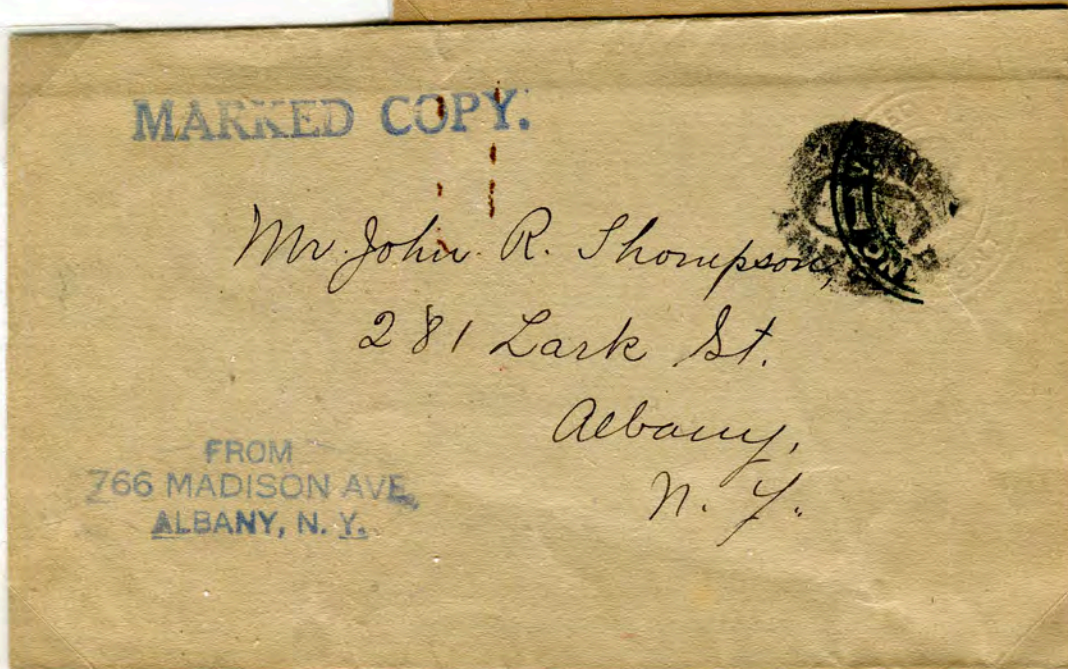 MARKED COPY.
Mr. John R. Thompson,
281 Lark St.
Albany,
N. Y.
FROM
766 MADISON AVE,
ALBANY, N. Y.